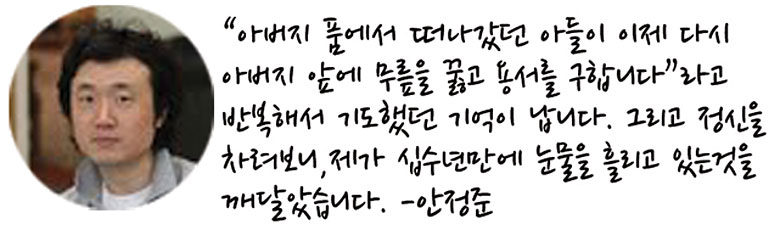 “아버지 품에서 떠나갔던 아들이 이제 다시
아버지 앞에 무릎을 꿇고 용서를 구합니다”라고
반복해서 기도했던 기억이 납니다. 그리고 정신을
차려보니,제가 십수년만에 눈물을 흘리고 있는것을
깨달았습니다. -안정준